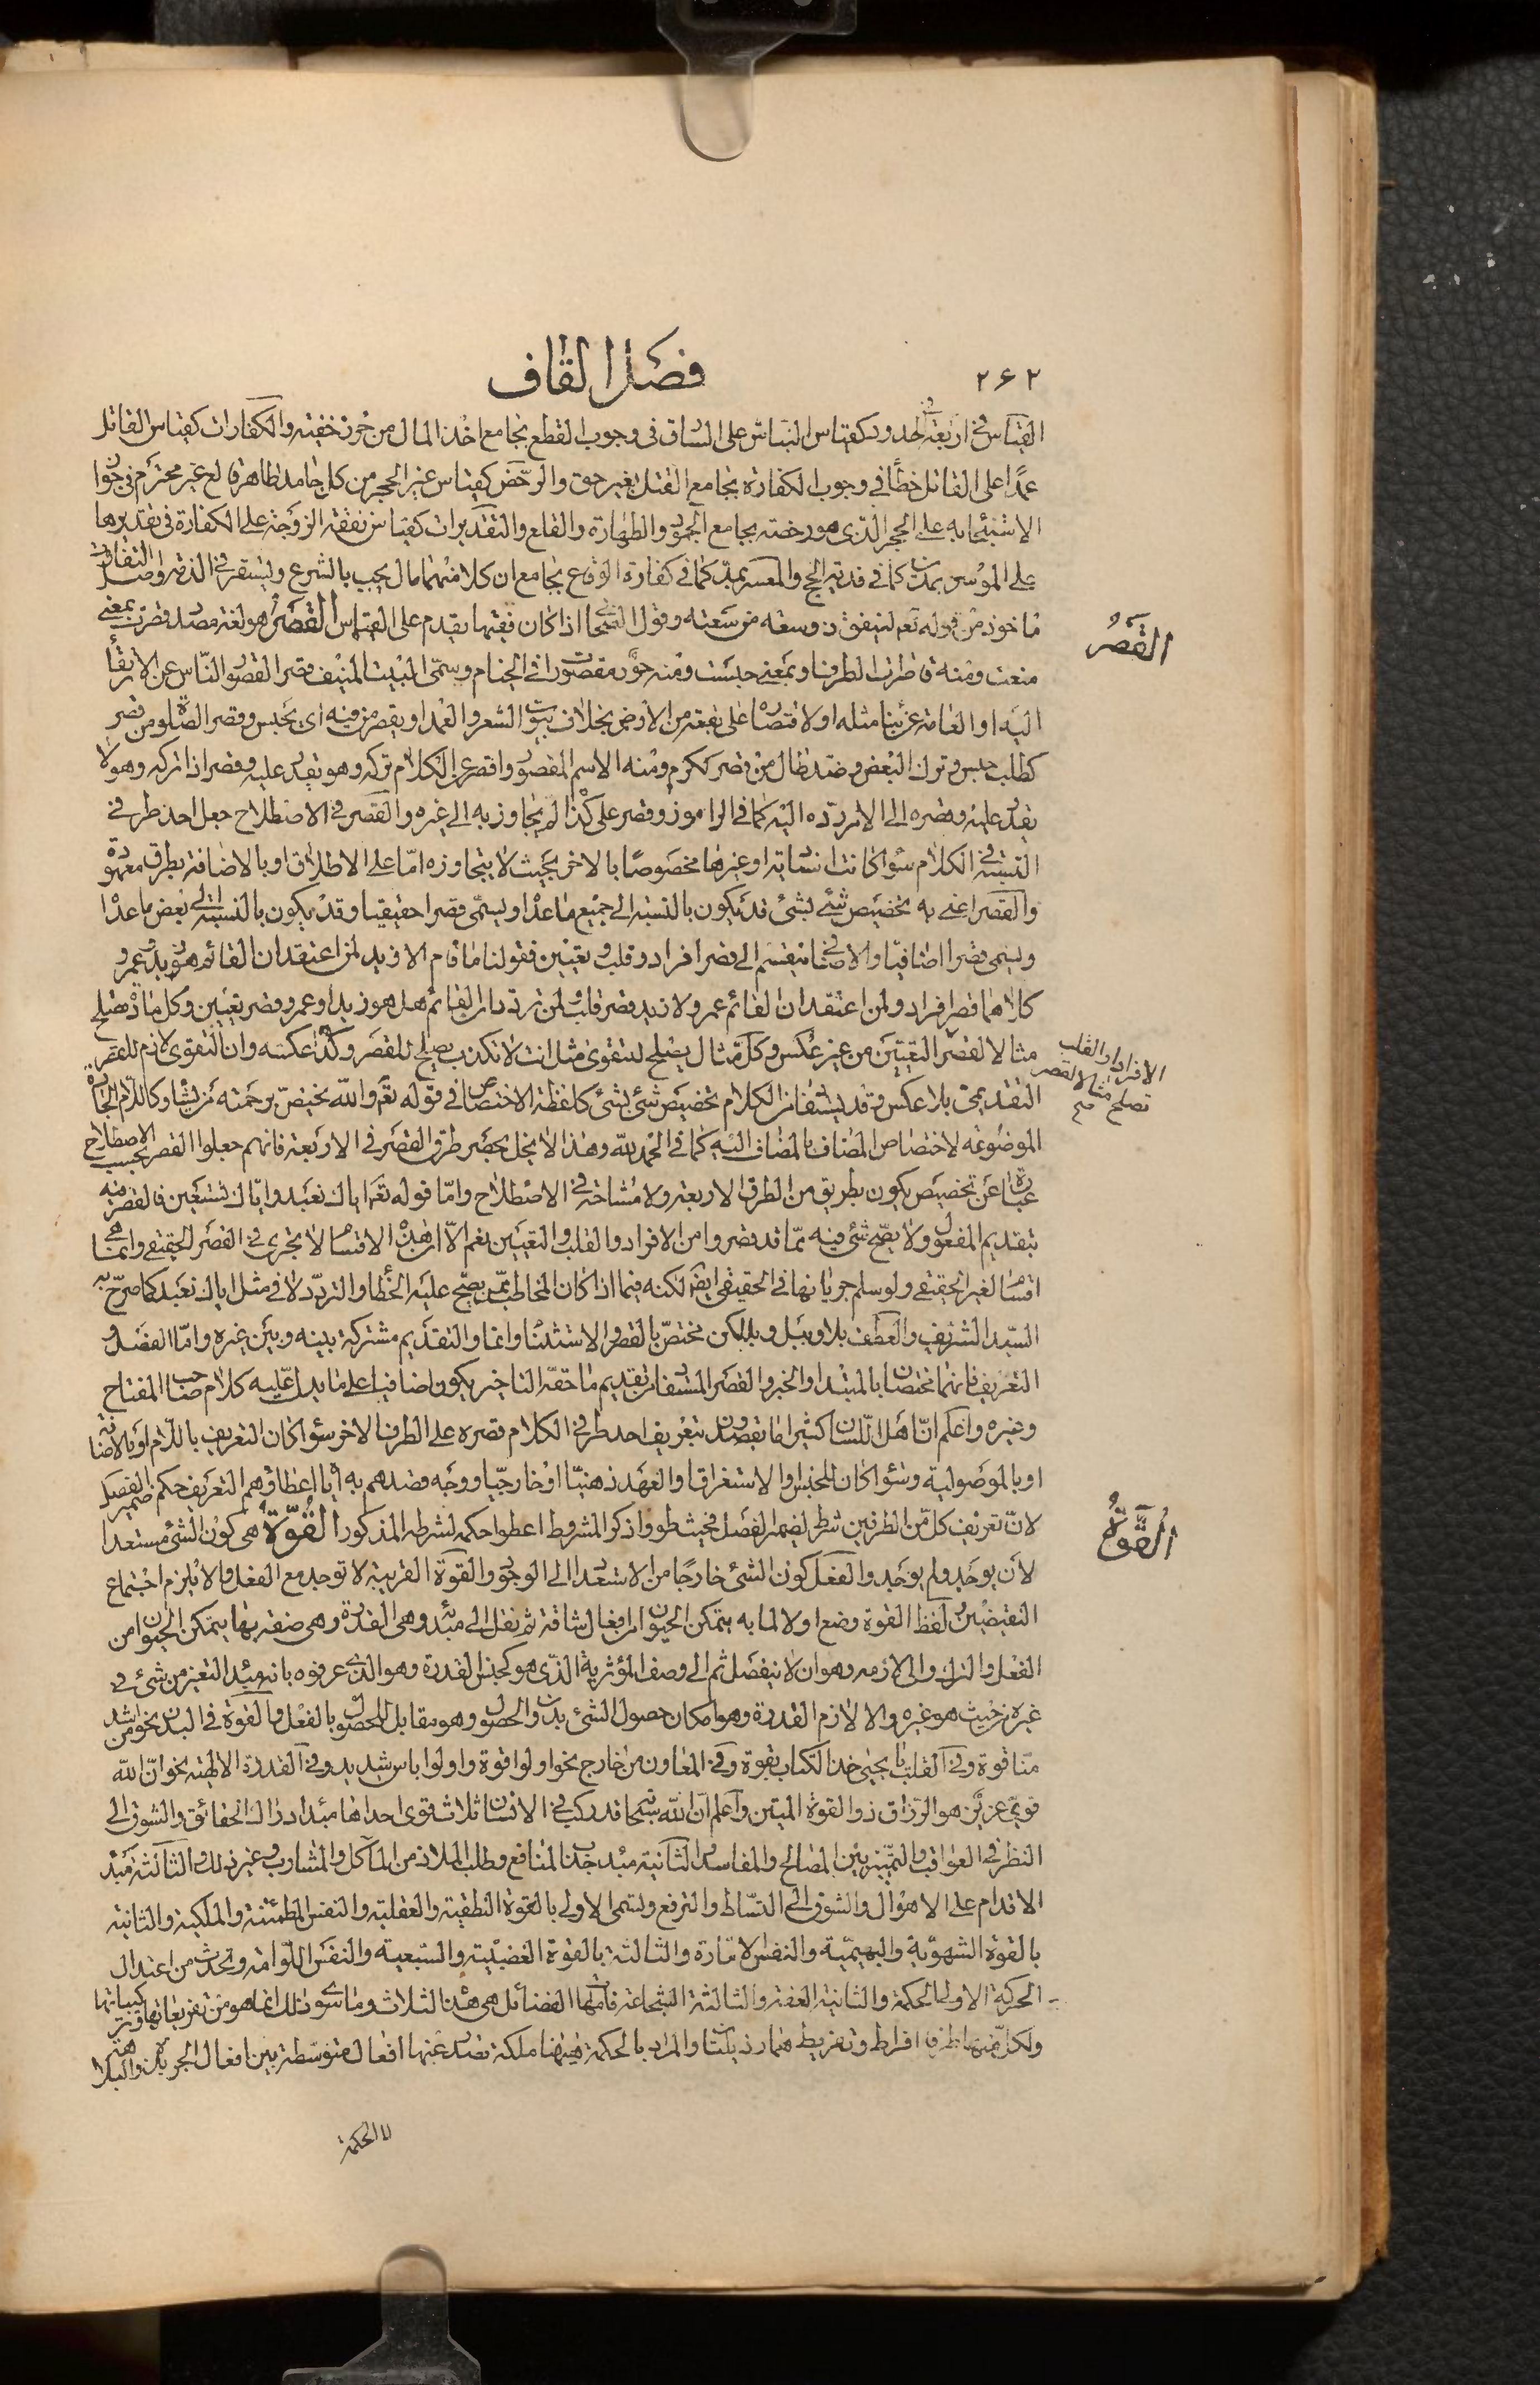 ٢۶٢
فصل القاف
القياس في اربعة الحدود كقياس النباش على السارق في وجوب القطع بجامع اخذ المال من حرز خفية والكفارات كقياس القاتل
عمدا على القاتل خطأ في وجوب الكفارة بجامع القتل بغير حق والرخص كقياس غير الحجر من كل جامد طاهر قالع غير محترم في جواز
الاستنجاء به على الحجر الذي هو رخصة بجامع الجمود والطهارة والقلع والتقديرات كقياس نفقة الزوجة على الكفارة في تقديرها
على الموسر بمدين كما في فدية الحج والمعسر بمد كما في كفارة الوقاع بجامع ان كلا منهما مال يجب بالشرع ويستقر في الذمة واصل التفاوت
مأخوذ من قوله تعم لينفق ذو سعة من سعته وقول الصحابي اذا كان فقيها يقدم على القياس القصر هو لغة مصدر قصرت بمعنى
منعت ومنه قاصرات الطرف او بمعنى حبست ومنه حور مقصورات في الخيام وسمى البيت المنيف قصرا لقصور الناس عن الارتقاء
اليه او العامة عن بنا مثله او لاقتصاره على بقعة من الارض بخلاف بيوت الشعر والعمد او يقصر من فيه اى يحبس وقصر الصلوة من قصر
كطلب حبس وترك البعض وضد طال من قصر ككرم ومنه الاسم المقصور واقصر عن الكلام تركه وهو يقدر عليه وقصر اذا تركه وهو لا
يقدر عليه وقصره الى الامر رده اليه كما في الراموز وقصر على كذا لم يتجاوز به الى غيره والقصر في الاصطلاح جعل احد طرفي
النسبة في الكلام سواء كانت اسنادية او غيرها مخصوصا بالاخر بحيث لا يتجاوزه اما على الاطلاق او بالاضافة بطرق معهودة
والقصر اعنى به تخصيص شئ بشئ قد يكون بالنسبة الى جميع ما عداه ويسمى قصرا حقيقيا وقد يكون بالنسبة الى بعض ما عداه
ويسمى قصرا اضافيا والاضافي ينقسم الى قصر افراد وقلب وتعيين فقولنا ما قام الا زيد لمن اعتقد ان القائم هو زيد وعمرو
كلاهما قصر افراد ولمن اعتقد ان القائم عمرو لا زيد قصر قلب ولمن تردد ان القائم هل هو زيد او عمرو قصر تعيين وكل مادة تصلح
مثالا لقصر التعيين من غير عكس وكل مثال يصلح للتقوى مثل انت لا تكذب يصلح للقصر وكذا عكسه وان التقوى لازم للقصر
التقديمي بلا عكس وقد يستفاد من الكلام تخصيص شئ بشئ كلفظة الاختصاص في قوله تعم والله يختص برحمته من يشاء وكاللام الجارة
الموضوعة لاختصاص المضاف بالمضاف اليه كما في الحمد لله وهذا لا يخل بحصر طرق القصر في الاربعة فانهم جعلوا القصر بحسب الاصطلاح
عبارة عن تخصيص يكون بطريق من الطرق الاربعة ولا مشاحة في الاصطلاح واما قوله تعم اياك نعبد واياك نستعين فالقصر فيه
بتقديم المفعول ولا يصح شئ فيه مما قد قصروا من الافراد والقلب والتعيين نعم الا ان هذه الاقسام لا تجرى في القصر الحقيقي وانما هي
اقسام لغير الحقيقي ولو سلم جريانها في الحقيقي ايضا لكنه فيما اذا كان المخاطب ممن يصح عليه الخطا والتردد لا في مثل اياك نعبد كما صرح به
السيد الشريف والعطف بلا وببل وبلكن مختص بالقصر والاستثناء وانما والتقديم مشتركة بينه وبين غيره واما الفصل و
التعريف فانهما مختصان بالمبتدا والخبر والقصر المستفاد من تقديم ما حقه التاخير يكون اضافيا على ما يدل عليه كلام صاحب المفتاح
وغيره واعلم ان اهل اللسان كثيرا ما يقصدون بتعريف احد طرفي الكلام قصره على الطرف الاخر سواء كان التعريف باللام او بالاضافة
او بالموصولية وسواء كان للجنس او الاستغراق او العهد ذهنيا او خارجيا ووجه قصدهم به اياه اعطاؤهم التعريف حكم ضمير الفصل
لان تعريف كل من الطرفين شرط لضمير الفصل فحيث طووا ذكر المشروط اعطوا حكمه لشرطه المذكور القوة هي كون الشئ مستعدا
لان يوجد ولم يوجد والفعل كون الشئ خارجا من الاستعداد الى الوجود والقوة القريبة لا توجد مع الفعل والا يلزم اجتماع
النقيضين لفظ القوة وضع اولا لما به يتمكن الحيوان من افعال شاقة ثم نقل الى مبدئه وهى القدرة وهى صفة بها يتمكن الحيوان من
الفعل والترك والى لازمه وهو ان لا ينفعل ثم الى وصف المؤثرية الذى هو كجنس القدرة وهو الذى عرفوه بانه مبدا التغير من شئ في
غيره من حيث هو غيره والا لازم القدرة وهو امكان حصول الشئ بدون الحصول وهو مقابل للحصول بالفعل والقوة في البدن نحو من اشد
منا قوة وفي القلب يا يحيى خذ الكتاب بقوة وفي المعاون من خارج نحو اولوا قوة واولوا باس شديد وفي القدرة الالهية نحو ان الله
قوي عزيز هو الرزاق ذو القوة المتين واعلم ان الله سبحانه قد ركب في الانسان ثلاث قوى احداها مبدا ادراك الحقائق والشوق الى
النظر في العواقب والتمييز بين المصالح والمفاسد الثانية مبدا جذب المنافع وطلب الملاذ من المآكل والمشارب وغير ذلك والثالثة مبدا
الاقدام على الاهوال والشوق الى التسلط والترفع وتسمى الاولى بالقوة النطقية والعقلية والنفس المطمئنة والملكية والثانية
بالقوة الشهوية والبهيمية والنفس الامارة والثالثة بالقوة الغضبية والسبعية والنفس اللوامة ويحدث من اعتدال
الحركة الاولى الحكمة والثانية العفة والثالثة الشجاعة فامهات الفضائل هى هذه الثلاث وما سوى ذلك انما هو من تفريعاتها وتركيباتها
ولكل منها طرفا افراط وتفريط هما رذيلتان والمراد بالحكمة ههنا ملكة تصدر عنها افعال متوسطة بين افعال الجربزة والبلاهة
لا الحكمة
القصر
الافراد والقلب
تصلح مثالا لقصر
صح
القوة